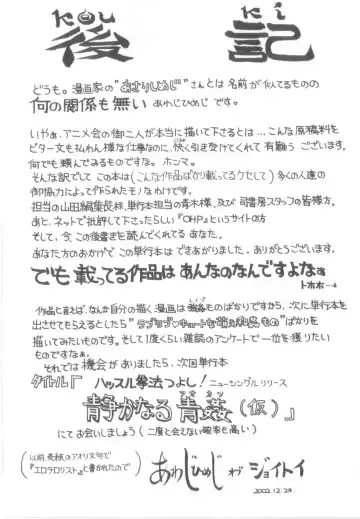 こうき
後記
どうも。漫画家の"あさりしめじ"さんとは名前が似てるものの
何の関係も無い あわじひめじ です。
いやぁ、アニメ会の御二人が本当に描いて下さるとは…こんな原稿料を
ビター文も払わん様な仕事なのに、快く引き受けてくれて有難う ございます。
何でも頼んでみるものですな。ホンマ。
そんな訳でして この本は(こんな作品ばかり載ってるクセして)多くの人達の
御協力によって作られたモノなわけです。
担当の山田編集長様、単行本担当の青木様、及び 司書房スタッフの皆様方。
あと、ネットで批評して下さったらしい『OHP』というサイトの方
そして、今 この後書きを読んでくれてる あなた。
あなた方のおかげで この単行本は できあがりました。ありがとうございます。
でも載ってる作品は あんなのなんですよなぁ
トホホ…
作品と言えば、なんか自分の描く漫画は ものばかりですから、次に単行本を
出させてもらえるとしたら ばかりを
描いてみたいものです。そして1度くらい雑誌のアンケートで一位を獲りたい
ものですなぁ。
それでは 機会が ありましたら、次回単行本
タイトル『 ハッスル拳法つよし! ニューシングル リリース
静かなる 青姦(仮)』
にてお会いしましょう(二度と会えない確率も高い)
(以前、表紙のアオリ文句で
『エロテロリスト』と書かれたので)
あわじひめじ わ ジョイトイ
2002.12.24